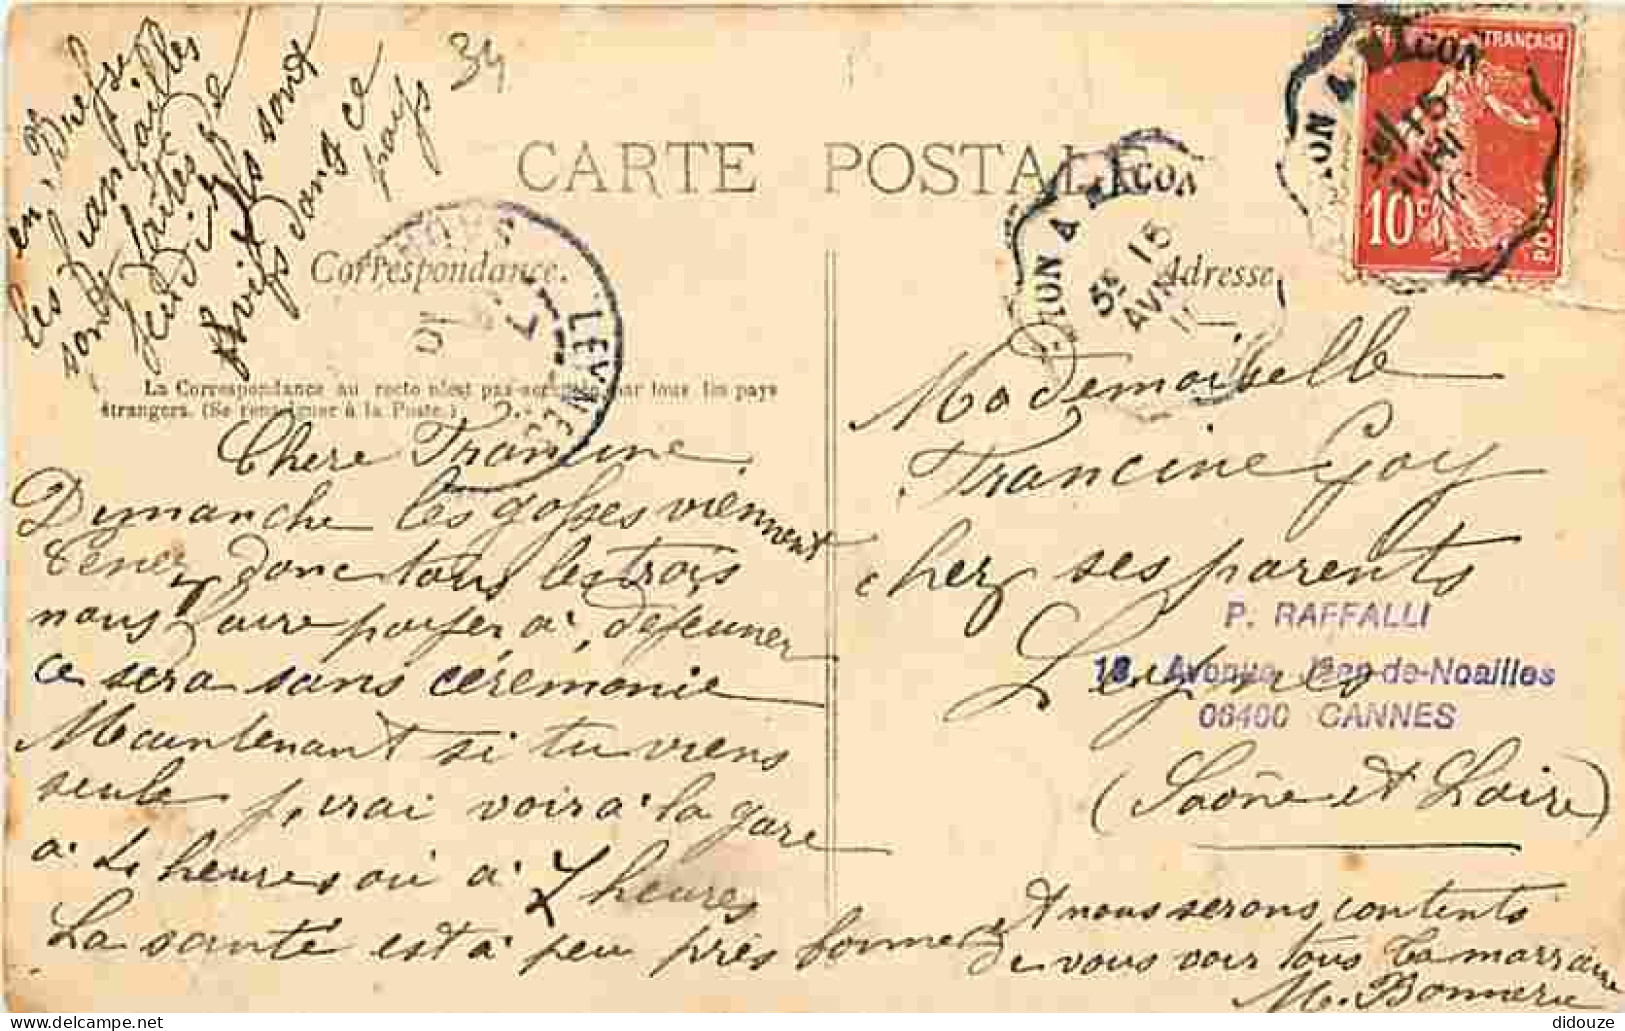 en Bresse
les fiançailles
sont faites de
jeudi. Ils sont
vifs dans ce
pays
34
CARTE POSTALE
Correspondance.
Adresse
La Correspondance au recto n'est pas acceptée par tous les pays
étrangers. (Se renseigner à la Poste.)
LEYNES
DIJON A MACON
15
AVRIL
DIJON A MACON
15
AVRIL
FRANÇAISE
10c
POSTES
Chere Francine
Dimanche les gosses viennent
Venez donc tous les trois
nous faire passer à déjeuner
ce sera sans cérémonie
Maintenant si tu viens
seule j'irai voir à la gare
à 4 heures ou à 7 heures
La santé est à peu près bonne
et nous serons contents
de vous voir tous ta marraine
M. Bonnerue
Mademoiselle
Francine Goy
chez ses parents
Leynes
(Saône et Loire)
P. RAFFALLI
18, Avenue Jean-de-Noailles
06400 CANNES
didouze